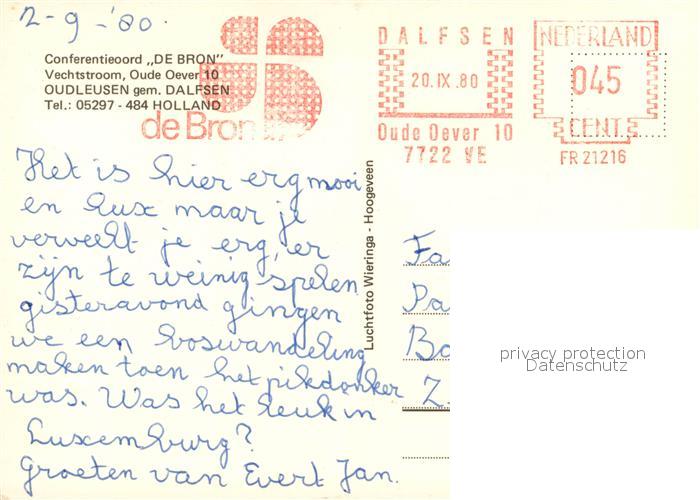 2-9-'80.
Conferentieoord „DE BRON"
Vechtstroom, Oude Oever 10
OUDLEUSEN gem. DALFSEN
Tel.: 05297 - 484 HOLLAND
de Bron
DALFSEN
20.IX.80
Oude Oever 10
7722 VE
NEDERLAND
045
CENT.
FR 21216
Het is hier erg mooi
en lux maar je
verveelt je erg, er
zijn te weinig spelen
gisteravond gingen
we een boswandeling
maken toen het pikdonker
was. Was het leuk in
Luxemburg?
Groeten van Evert Jan.
Luchtfoto Wieringa - Hoogeveen
Fa
Pa
Bo
Z.
privacy protection
Datenschutz